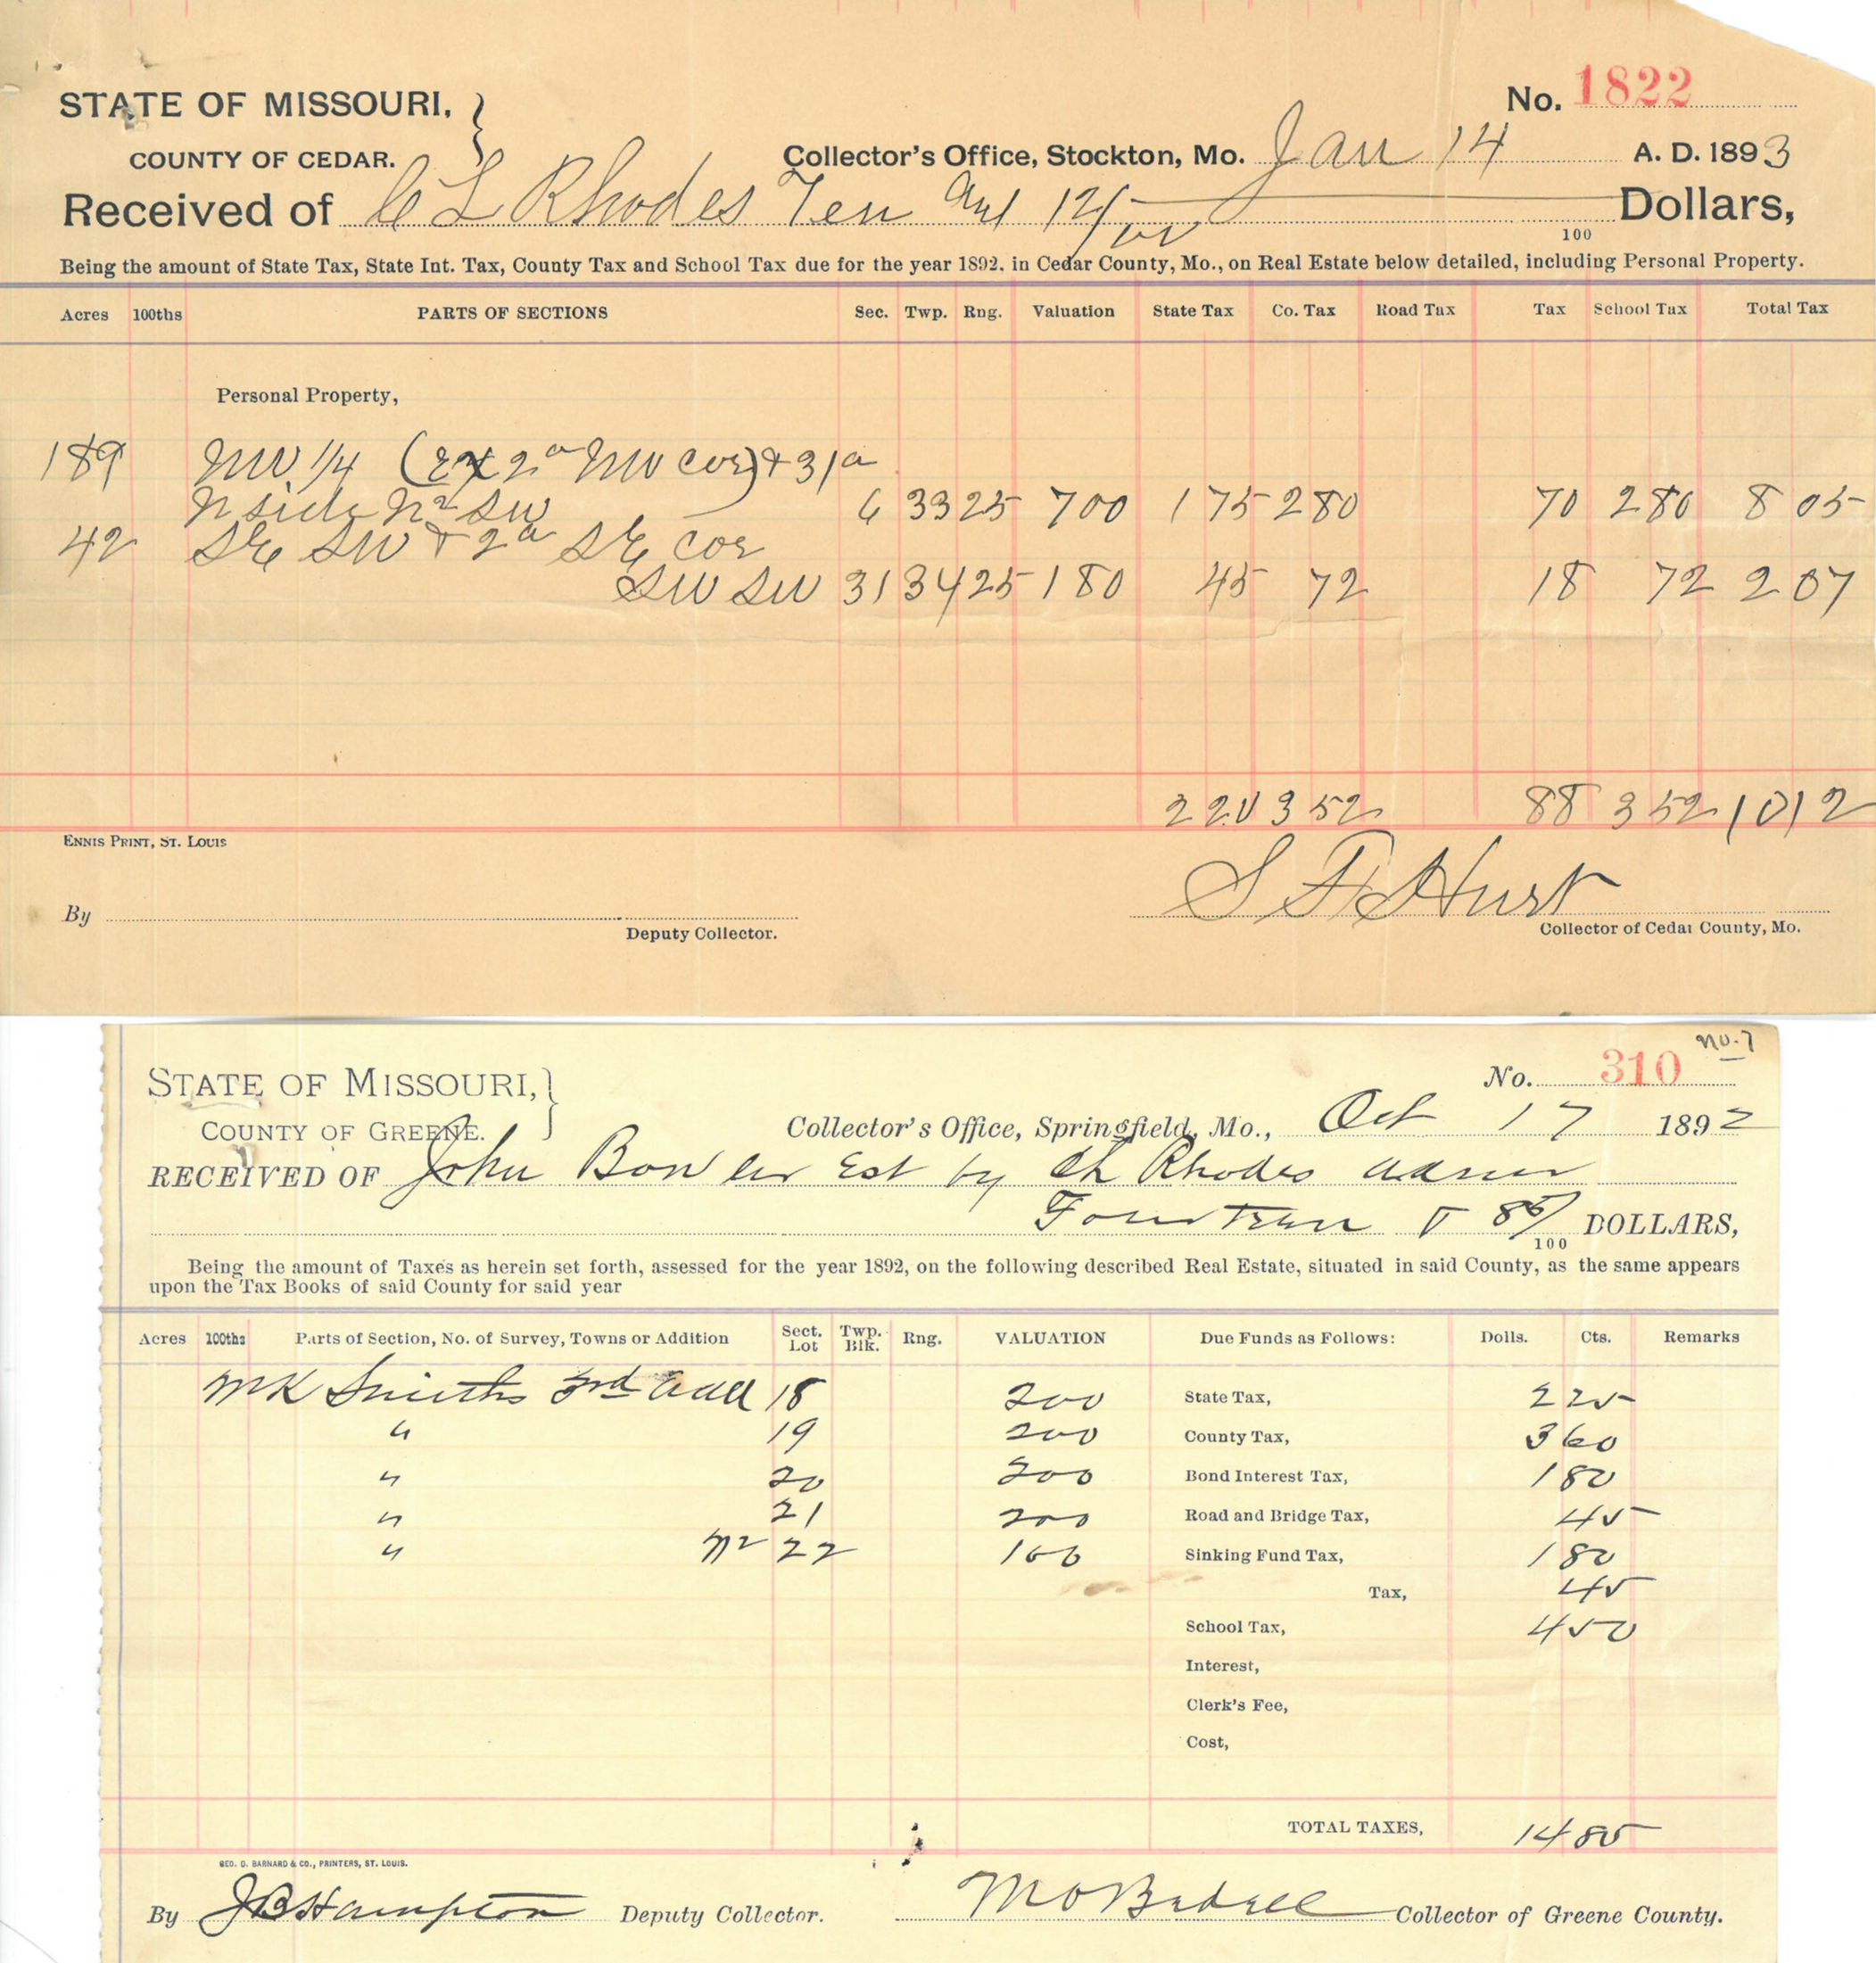 No. 1822
STATE OF MISSOURI, }
COUNTY OF CEDAR.
Collector's Office, Stockton, Mo. Jan 14 A. D. 1893
Received of C L Rhodes Ten and 12/100 Dollars,
100
Being the amount of State Tax, State Int. Tax, County Tax and School Tax due for the year 1892, in Cedar County, Mo., on Real Estate below detailed, including Personal Property.
Acres 100ths PARTS OF SECTIONS Sec. Twp. Rng. Valuation State Tax Co. Tax Road Tax Tax School Tax Total Tax
Personal Property,
189 NW 1/4 (Ex 2a NW cor) + 31a
N side N2 SW 6 33 25 700 175 280 70 280 8 05
42 SE SW + 2a SE cor
SW SW 31 34 25 180 45 72 18 72 2 07
220 352 88 352 1012
ENNIS PRINT, ST. LOUIS
S F Hurst
By
Deputy Collector.
Collector of Cedar County, Mo.
No. 7
No. 310
STATE OF MISSOURI, }
COUNTY OF GREENE.
Collector's Office, Springfield, Mo., Oct 17 1892
RECEIVED OF John Bowler Est by CL Rhodes Admr
Fourteen & 85/ DOLLARS,
100
Being the amount of Taxes as herein set forth, assessed for the year 1892, on the following described Real Estate, situated in said County, as the same appears
upon the Tax Books of said County for said year
Acres 100ths Parts of Section, No. of Survey, Towns or Addition Sect. Lot Twp. Blk. Rng. VALUATION Due Funds as Follows: Dolls. Cts. Remarks
MK Smiths 3rd Add 18 200 State Tax, 2 25
" 19 200 County Tax, 3 60
" 20 200 Bond Interest Tax, 1 80
" 21 200 Road and Bridge Tax, 45
" N2 22 100 Sinking Fund Tax, 1 80
Tax, 45
School Tax, 4 50
Interest,
Clerk's Fee,
Cost,
TOTAL TAXES, 14 85
GEO. D. BARNARD & CO., PRINTERS, ST. LOUIS.
By J B Hampton Deputy Collector. M O Bedell Collector of Greene County.